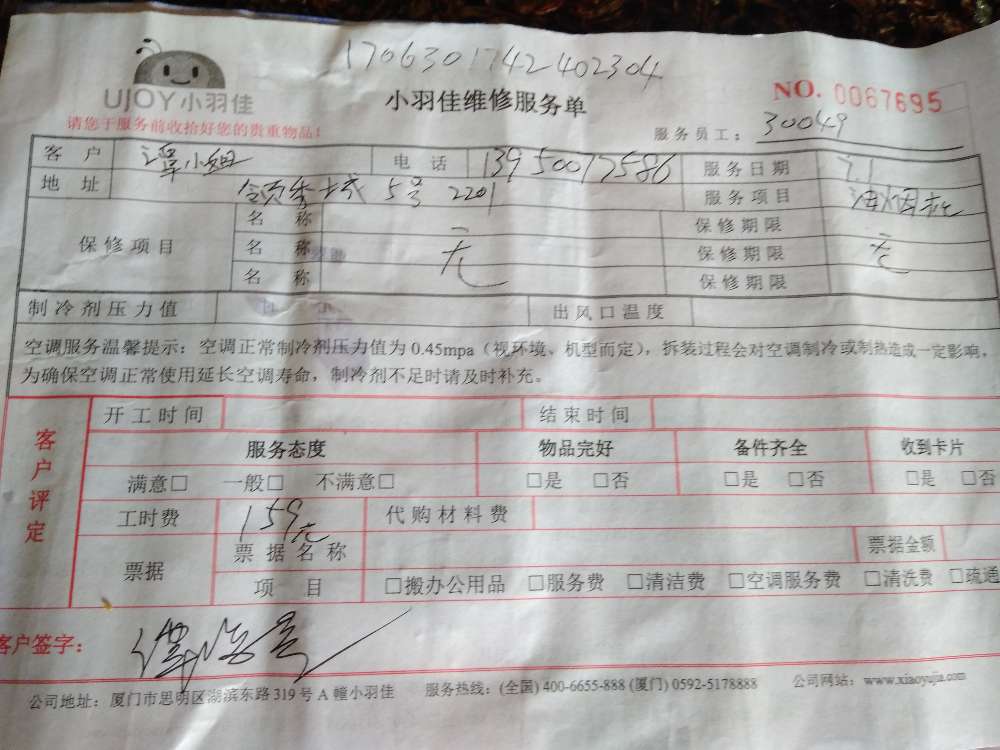 1706301742402304
UJOY小羽佳
小羽佳维修服务单
NO. 0067695
请您于服务前收拾好您的贵重物品!
服务员工: 30049
客户 谭小姐 电话 13950017586 服务日期 7.1
地址 领秀城 5号 2201 服务项目 油烟机
保修项目 名称 无 保修期限 无
名称 保修期限
名称 保修期限
制冷剂压力值 出风口温度
空调服务温馨提示:空调正常制冷剂压力值为0.45mpa(视环境、机型而定),拆装过程会对空调制冷或制热造成一定影响,
为确保空调正常使用延长空调寿命,制冷剂不足时请及时补充。
客户评定
开工时间 结束时间
服务态度 物品完好 备件齐全 收到卡片
满意□ 一般□ 不满意□ □是 □否 □是 □否 □是 □否
工时费 159元 代购材料费
票据 票据名称 票据金额
项目 □搬办公用品 □服务费 □清洁费 □空调服务费 □清洗费 □疏通
客户签字:
公司地址:厦门市思明区湖滨东路319号A幢小羽佳 服务热线:(全国)400-6655-888(厦门)0592-5178888 公司网站:www.xiaoyujia.com